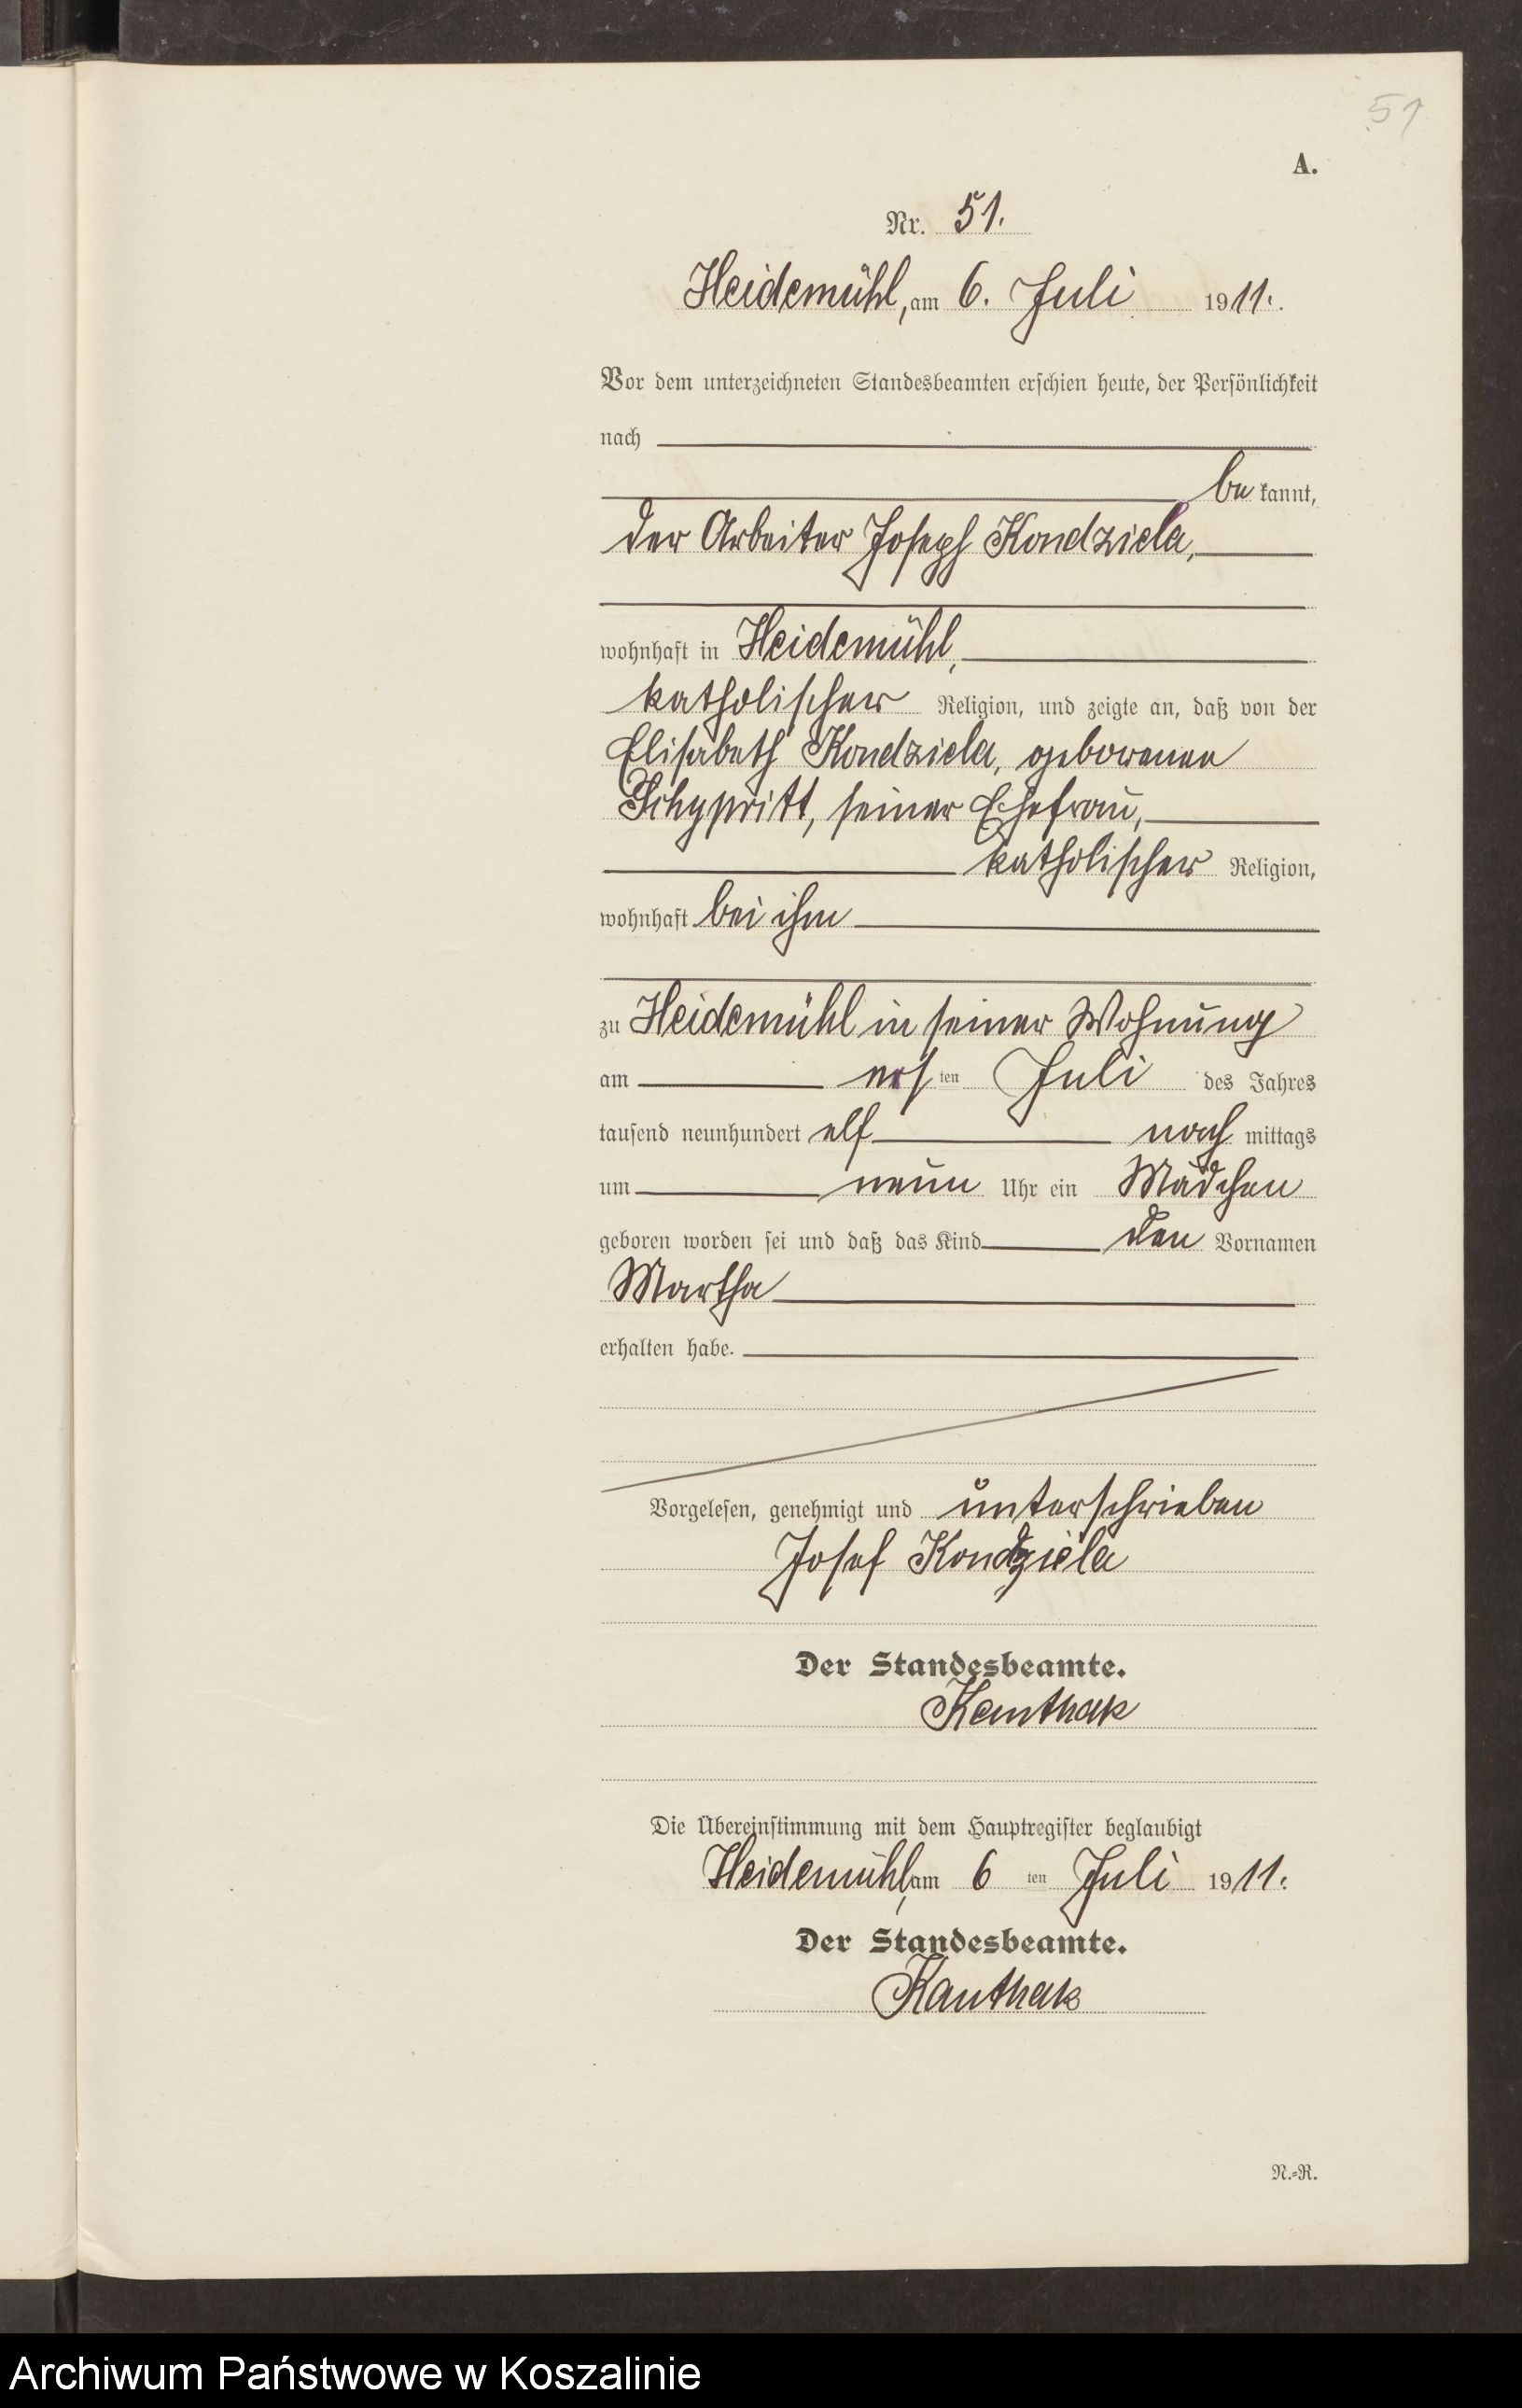 51
A.
Nr. 51.
Heidemühl, am 6. Juli 1911.
Vor dem unterzeichneten Standesbeamten erschien heute, der Persönlichkeit
nach
be kannt,
der Arbeiter Joseph Kondziela,
wohnhaft in Heidemühl,
katholischer Religion, und zeigte an, daß von der
Elisabeth Kondziela, geborenen
Schypritt, seiner Ehefrau,
katholischer Religion,
wohnhaft bei ihm
zu Heidemühl in seiner Wohnung
am ersten Juli des Jahres
tausend neunhundert elf nach mittags
um neun Uhr ein Mädchen
geboren worden sei und daß das Kind den Vornamen
Martha
erhalten habe.
Vorgelesen, genehmigt und unterschrieben
Josef Kondziela
Der Standesbeamte.
Kanthak
Die Übereinstimmung mit dem Hauptregister beglaubigt
Heidemühl, am 6 ten Juli 1911.
Der Standesbeamte.
Kanthak
N.=R.
Archiwum Państwowe w Koszalinie